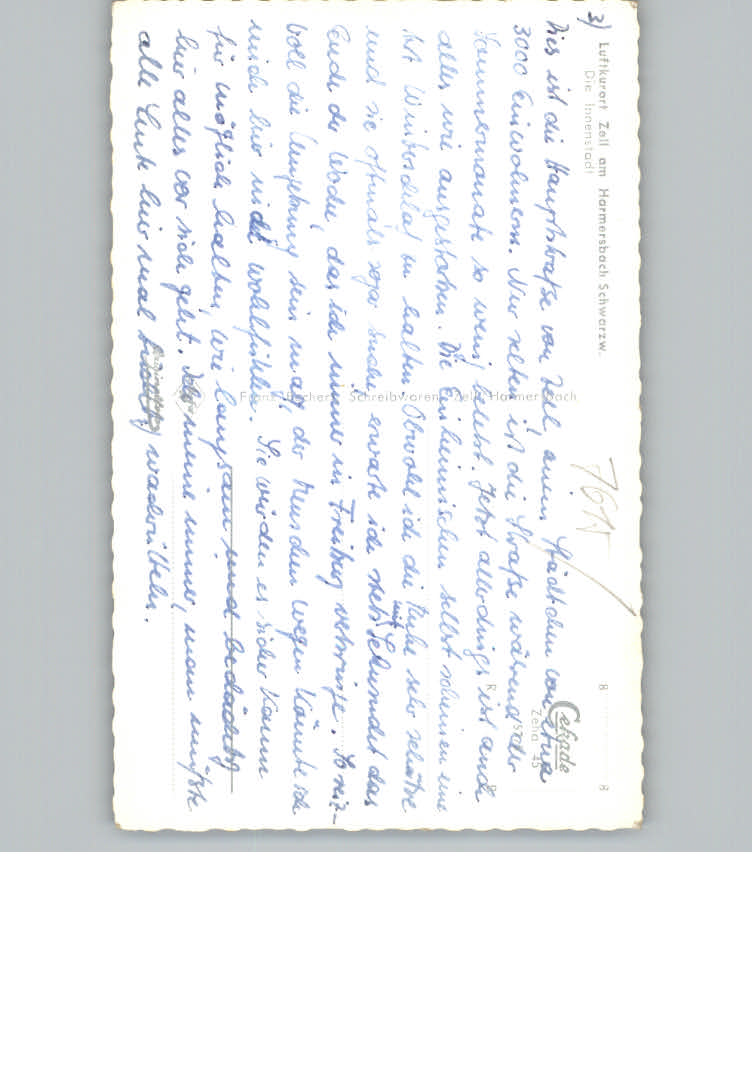 3) Luftkurort Zell am Harmersbach Schwarzw.
Die Innenstadt
Dies ist die Hauptstraße von Zell, einem Städtchen von etwa
3000 Einwohnern. Nur selten ist die Straße während der
Sommermonate so wenig belebt. Jetzt allerdings ist auch
alles wie ausgestorben. Die Einheimischen selbst scheinen eine
Art Winterschlaf zu halten. Obwohl ich die Ruhe sehr schätze
und sie oftmals sogar suche, erwarte ich stets mit Sehnsucht das
Ende der Woche, das ich immer in Freiburg verbringe. So reiz-
voll die Umgebung sein mag, der Menschen wegen könnte ich
mich hier nicht wohlfühlen. Sie würden es sicher kaum
für möglich halten, wie langsam und bedächtig
hier alles vor sich geht. Ich meine immer, man müßte
alle Leute hier mal wachrütteln.
Franz Becherer Schreibwaren Zell Harmersbach
Cekade
Zella 45
R R
B B